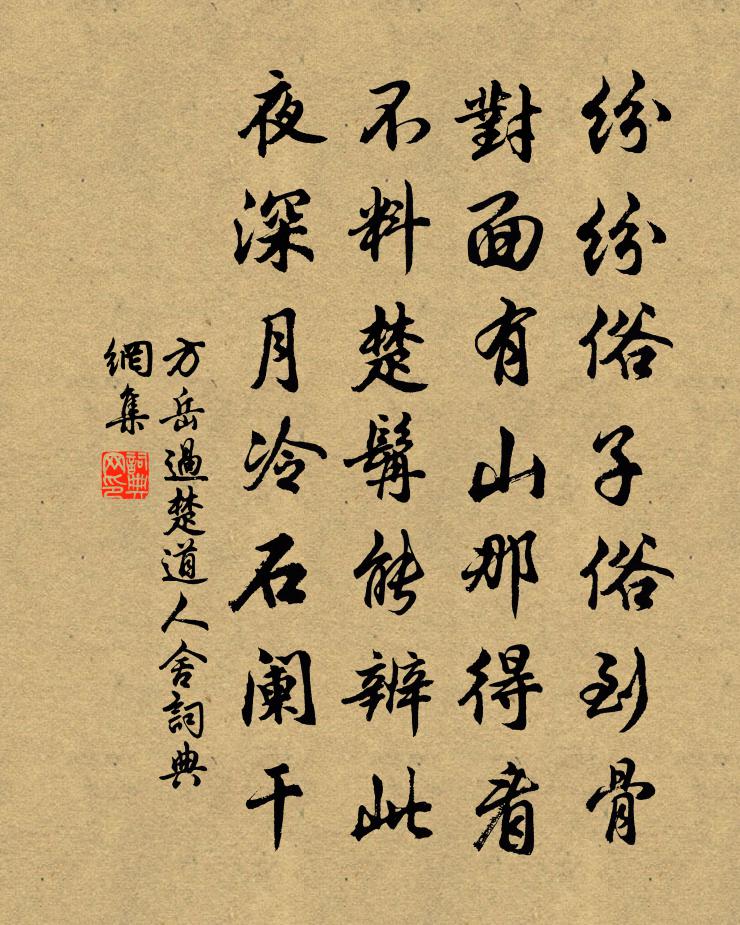 紛紛俗子俗到骨
對面有山那得看
不料楚髯能辦此
夜深月冷石闌干
方岳過楚道人舍詞典
網集
詞典
网印